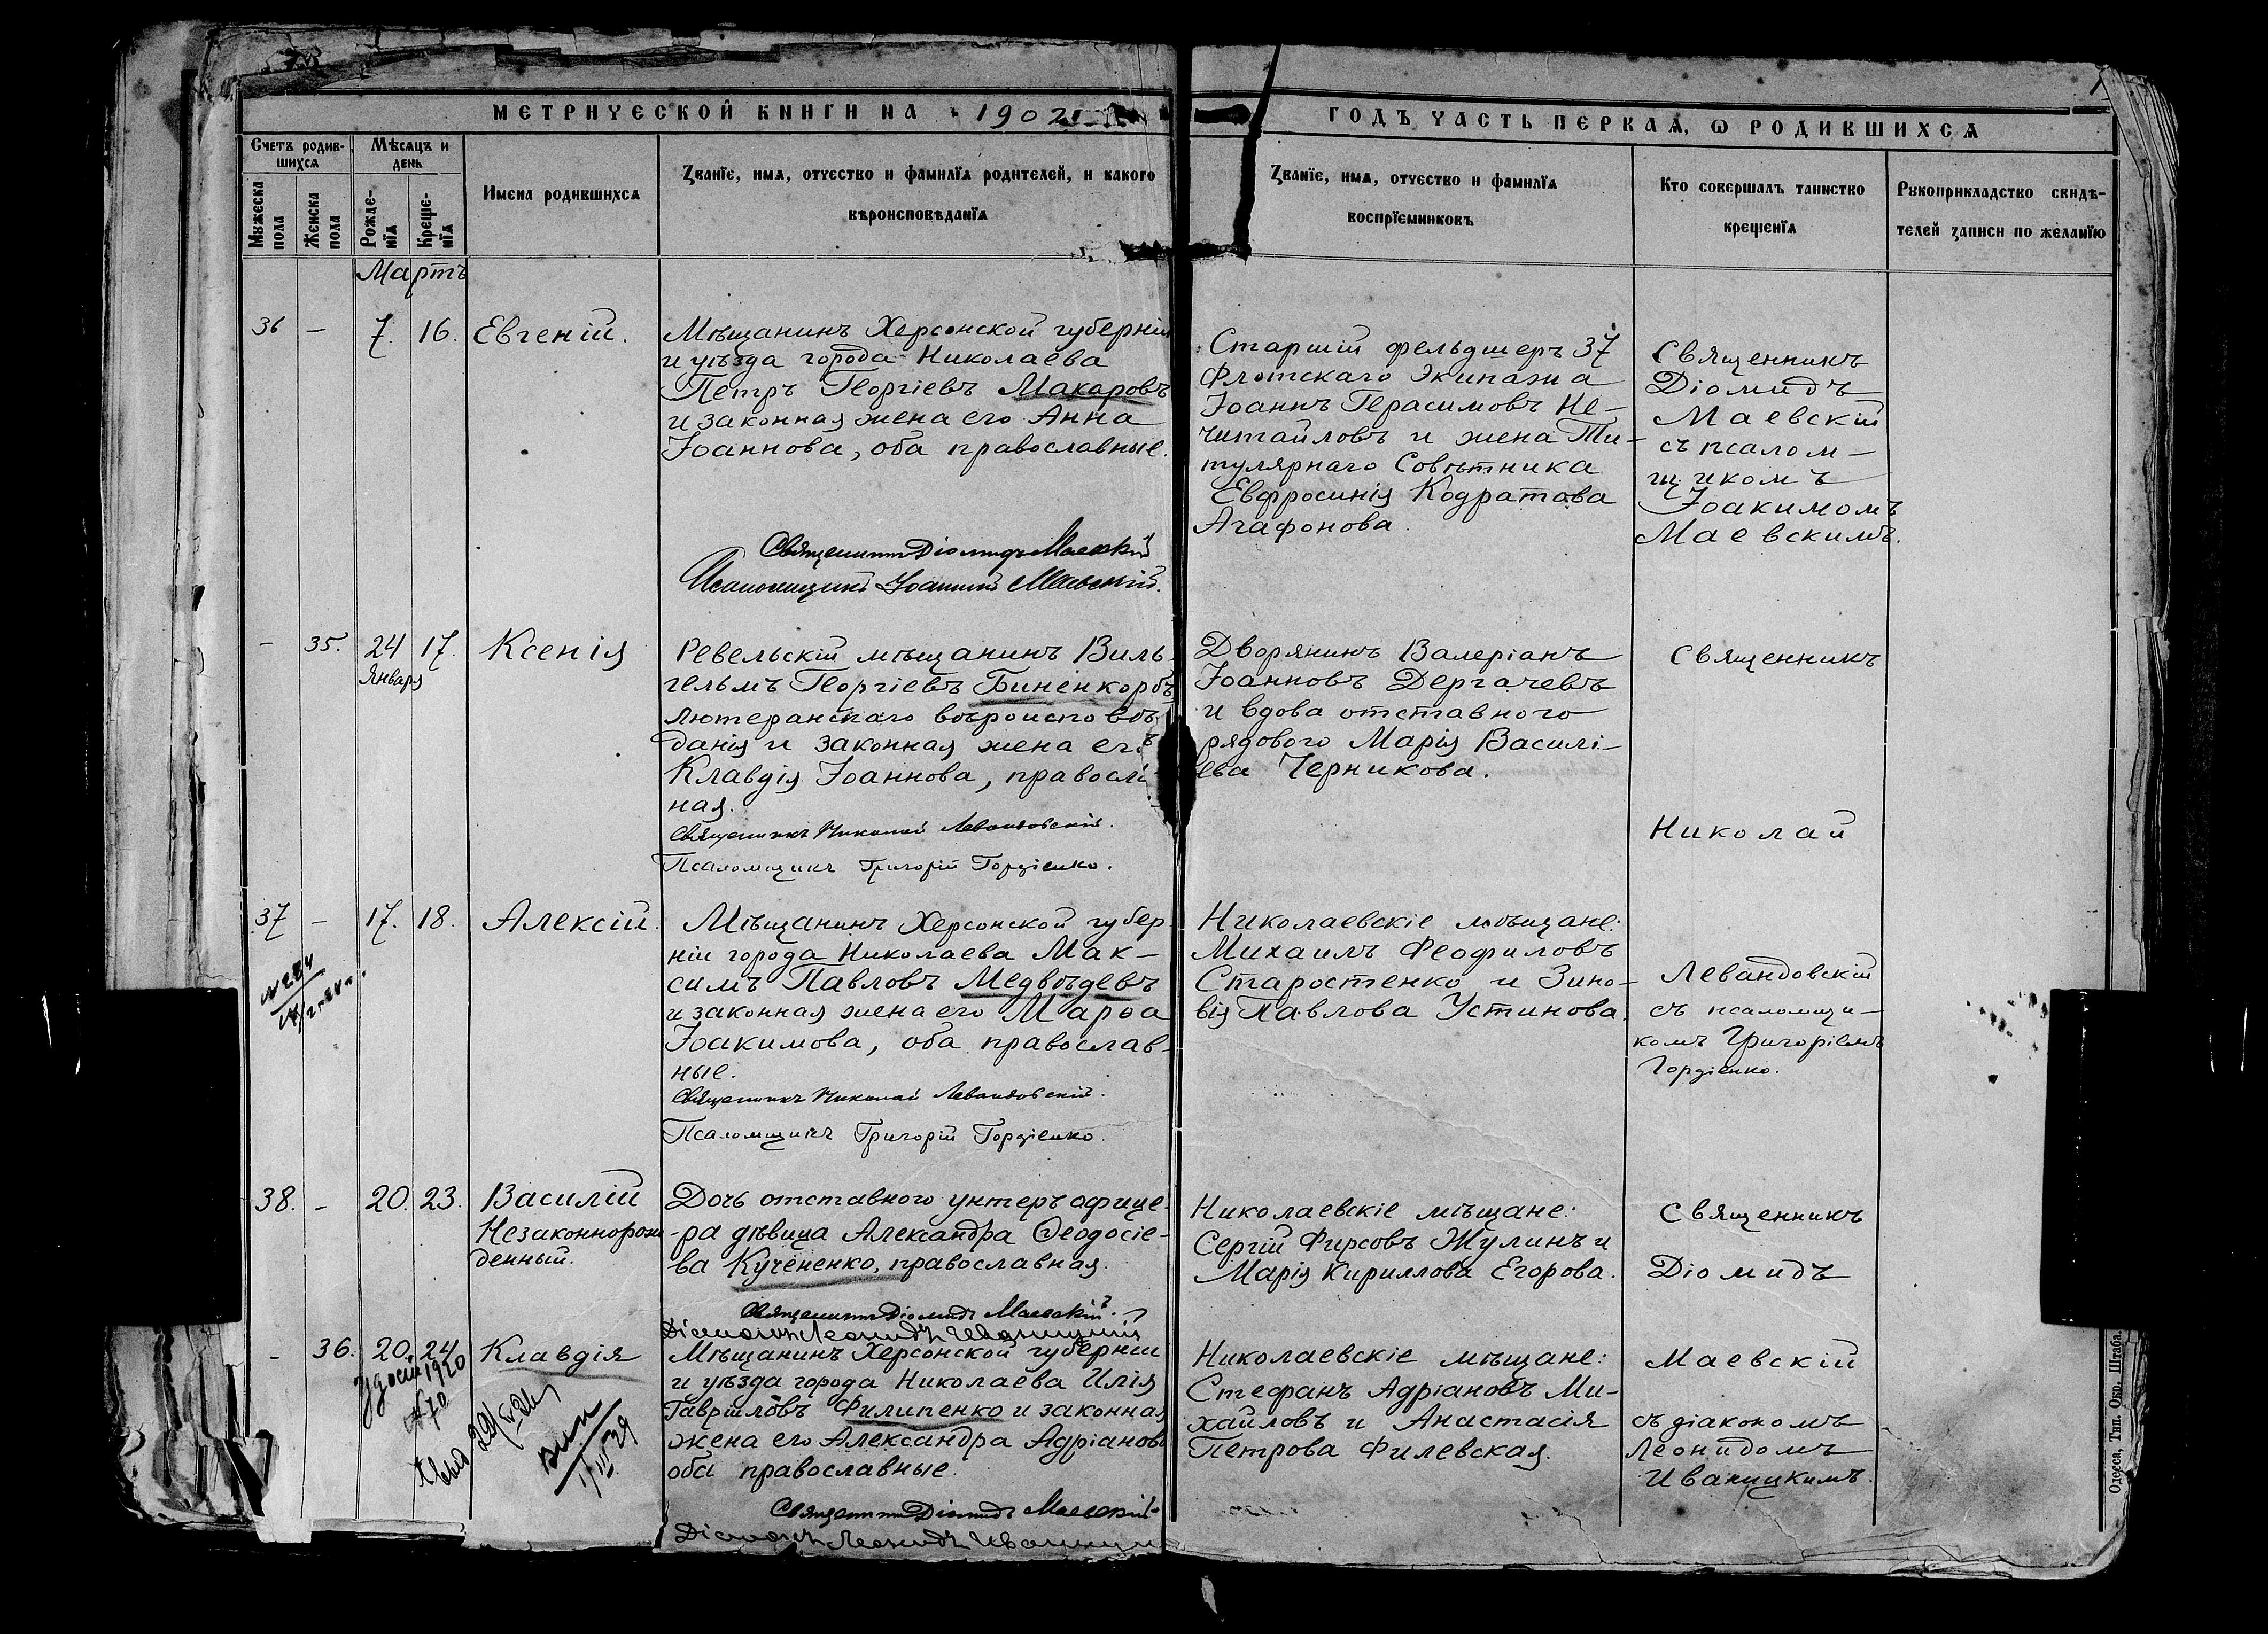 МЕТРИЧЕСКОЙ КНИГИ НА 1902
ГОДЪ ЧАСТЬ ПЕРВАЯ, Ѡ РОДИВШИХСЯ
Счетъ родив-
шихся
Мѣсяцъ и
день
Мужеска
пола
Женска
пола
Рожде-
нїя
Креще-
нїя
Имена родившихся
Званїе, имя, отчество и фамилїя родителей, и какого
вѣроисповѣданїя
Званїе, имя, отчество и фамилїя
воспрїемниковъ
Кто совершалъ таинство
крещенїя
Рукоприкладство свидѣ-
телей записи по желанїю
Мартъ
36 – 7. 16. Евгеній.
Мѣщанинъ Херсонской губерніи
и уѣзда города Николаева
Петръ Георгіевъ Макаровъ
и законная жена его Анна
Іоаннова, оба православные.
Священникъ Діомидъ Маевскій
Псаломщикъ Іоакимъ Маевскій.
Старшій фельдшеръ 37
Флотскаго Экипажа
Іоаннъ Герасимовъ Не-
читайловъ и жена Ти-
тулярнаго Совѣтника
Евфросинія Кодратова
Агафонова.
Священникъ
Діомидъ
Маевскій
съ псалом-
щикомъ
Іоакимомъ
Маевскимъ.
– 35. 24 17. Ксенія
Января
Ревельскій мѣщанинъ Виль-
гельмъ Георгіевъ Биненкорбъ
лютеранскаго вѣроисповѣ-
данія и законная жена его
Клавдія Іоаннова, правосла
ная.
Священникъ Николай Левандовскій.
Псаломщикъ Григорій Гордіенко.
Дворянинъ Валеріанъ
Іоанновъ Дергачевъ
и вдова отставного
рядового Марія Василі-
ева Черникова.
Священникъ
Николай
37 – 17. 18. Алексій.
Мѣщанинъ Херсонской губер
ніи города Николаева Мак-
симъ Павловъ Медвѣдевъ
и законная жена его Марѳа
Іоакимова, оба православ-
ные.
Священникъ Николай Левандовскій.
Псаломщикъ Григорій Гордіенко.
Николаевскіе мѣщане:
Михаилъ Феофиловъ
Старостенко и Зино-
вія Павлова Устинова.
Левандовскій
съ псаломщи-
комъ Григоріемъ
Гордіенко.
38. – 20. 23. Василій
Незаконнорож-
денный.
Дочь отставного унтеръ офице-
ра дѣвица Александра Ѳеодосіе-
ва Кучененко, православная.
Священникъ Діомидъ Маевскій.
Діаконъ Леонидъ Иваницкій
Николаевскіе мѣщане:
Сергій Фирсовъ Жулинъ и
Марія Кириллова Егорова.
Священникъ
Діомидъ
– 36. 20. 24 Клавдія
1920
№ 70
Мѣщанинъ Херсонской губерніи
и уѣзда города Николаева Илія
Гавріиловъ Филипенко и законная
жена его Александра Адріанова
оба православные.
Священникъ Діомидъ Маевскій
Діаконъ Леонидъ Иваницкій
Николаевскіе мѣщане:
Стефанъ Адріановъ Ми-
хайловъ и Анастасія
Петрова Филевская.
Маевскій
съ діакономъ
Леонидомъ
Иваницкимъ.
Одесса, Тип. Окр. Штаба.